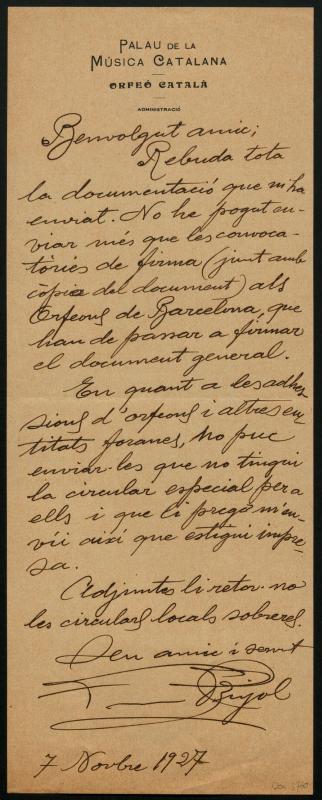 PALAU DE LA
MÚSICA CATALANA
ORFEÓ CATALÀ
ADMINISTRACIÓ
Benvolgut amic;
Rebuda tota
la documentació que m'ha
enviat. No he pogut en-
viar més que les convoca-
tòries de firma (junt amb
còpia del document) als
Orfeons de Barcelona, que
han de passar a firmar
el document general.
En quant a les adhe-
sions d'orfeons i altres en-
titats foranes, no puc
enviar-les que no tingui
la circular especial per a
ells i que li prego m'en-
viï així que estigui impre-
sa.
Adjuntes li retor-no
les circulars locals sobreres.
Seu amic i servt
Pujol
7 Novbre 1927